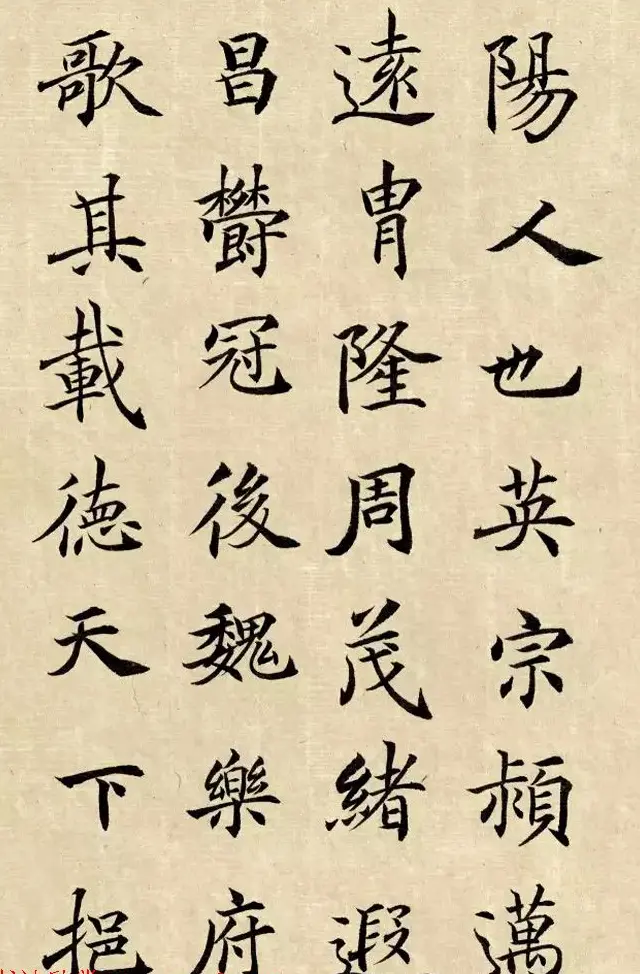 陽人也英宗頴邁
遠胄隆周茂緒遐
昌欝冠後魏樂府
歌其載徳天下挹